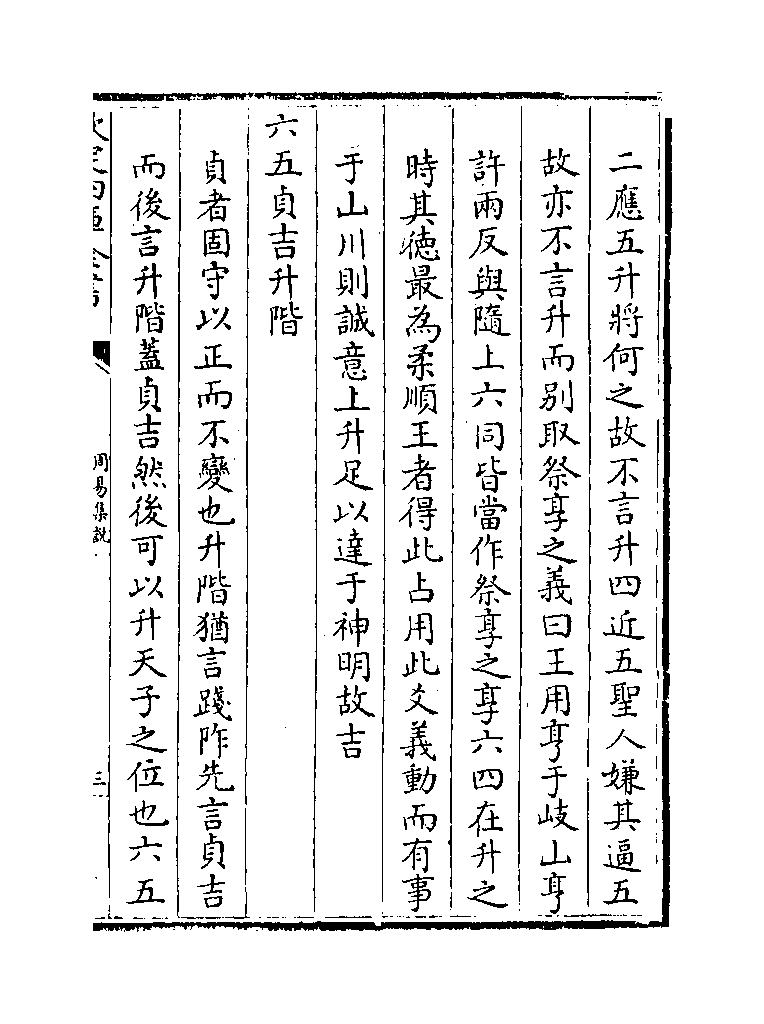 二應五升將何之故不言升四近五聖人嫌其逼五
故亦不言升而别取祭享之義曰王用亨于岐山亨
許兩反與隨上六同皆當作祭享之享六四在升之
時其徳最為柔順王者得此占用此爻義動而有事
于山川則誠意上升足以達于神明故吉
六五貞吉升階
貞者固守以正而不變也升階猶言踐阼先言貞吉
而後言升階蓋貞吉然後可以升天子之位也六五
周易集說
三